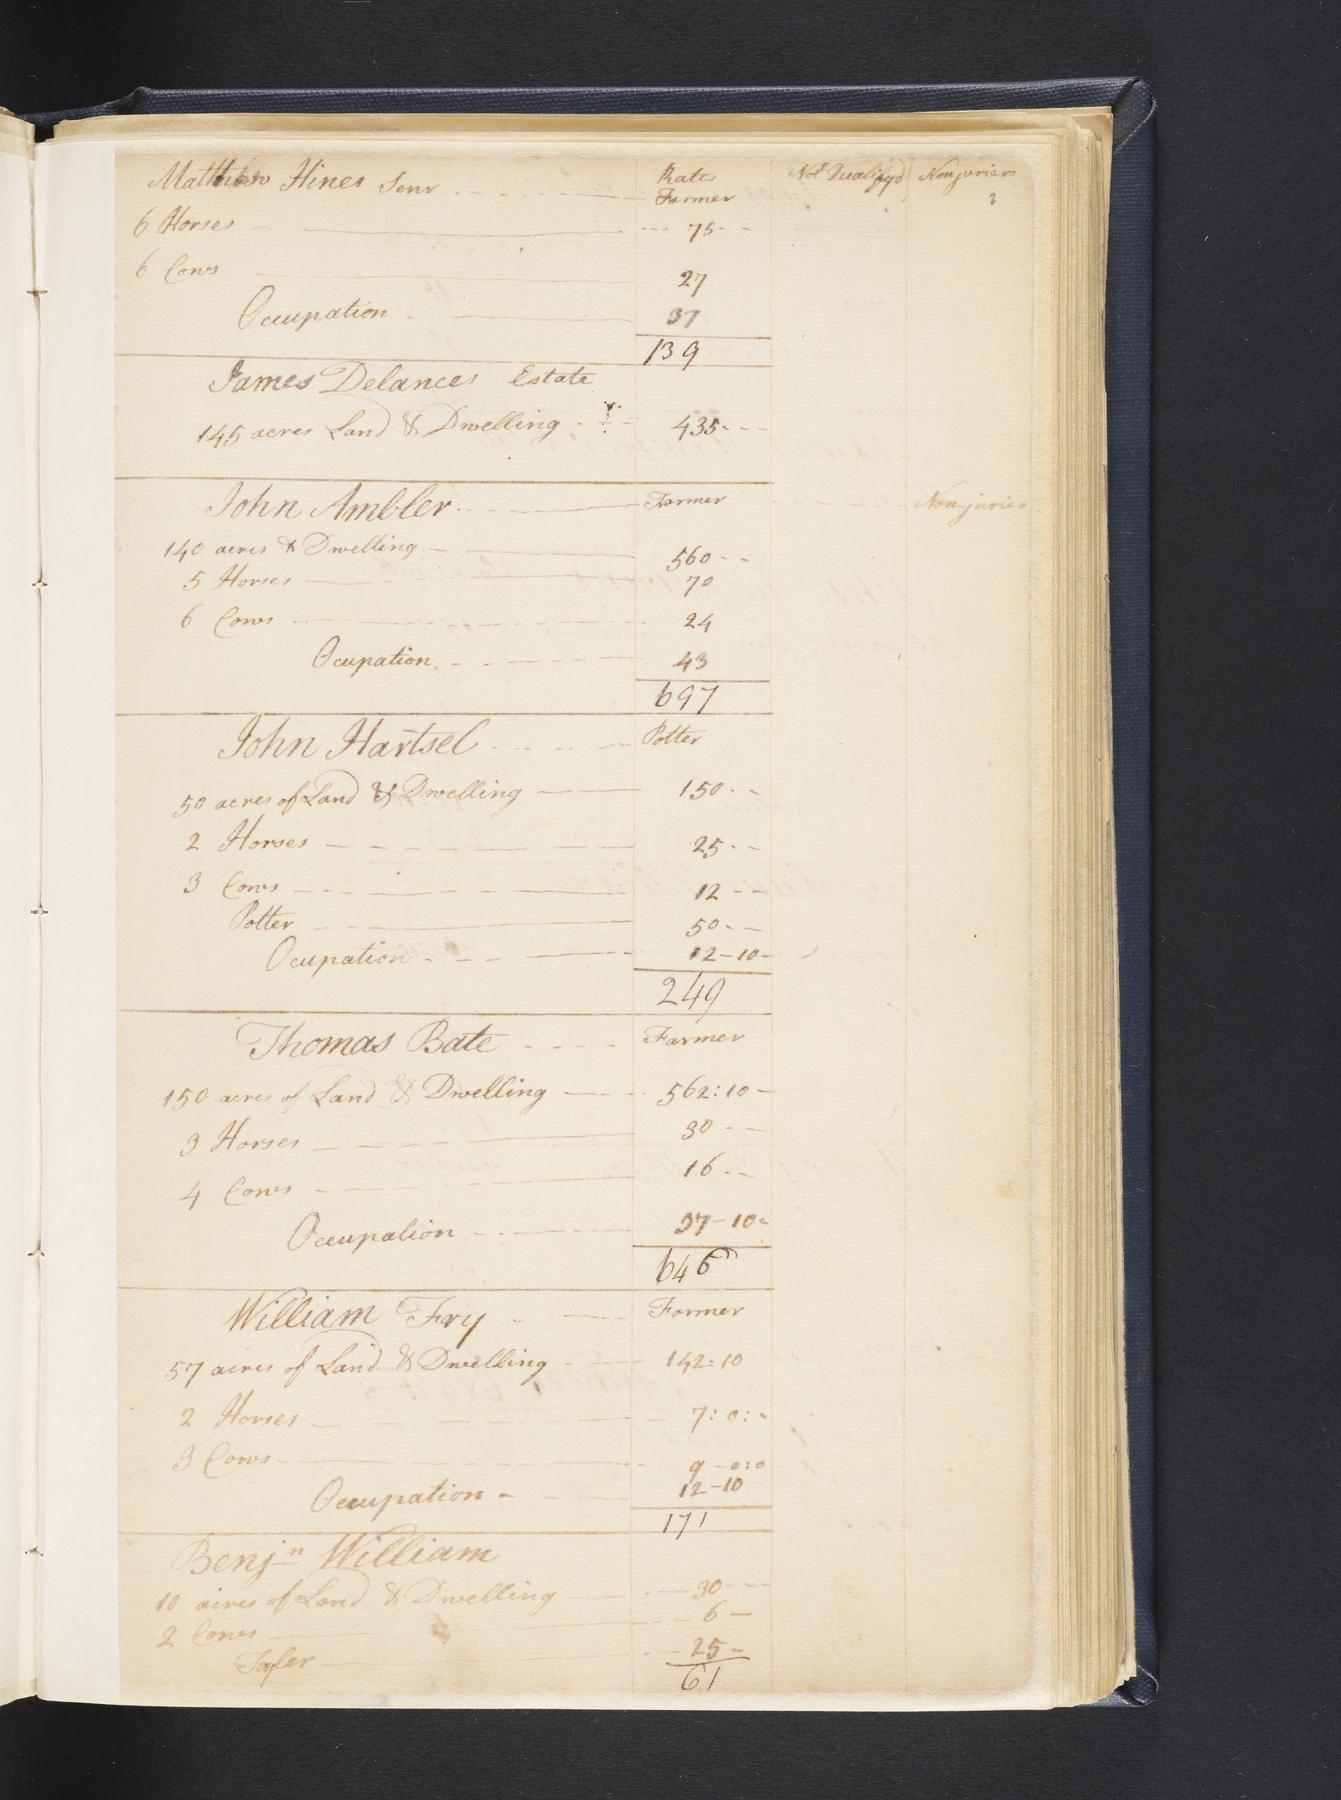 Matthew Hines Senr Rate Not Qualifyd Nonjuriers
Farmer
6 Horses 75
6 Cows 27
Occupation 37
139
James Delances Estate
145 acres Land & Dwelling 435
John Ambler Farmer Non-jurier
140 acres & Dwelling 560
5 Horses 70
6 Cows 24
Ocupation 43
697
John Hartsel Potter
50 acres of Land & Dwelling 150
2 Horses 25
3 Cows 12
Potter 50
Ocupation 12-10-
249
Thomas Bate Farmer
150 acres of Land & Dwelling 562:10-
3 Horses 30
4 Cows 16
Occupation 37-10-
646
William Fry Farmer
57 acres of Land & Dwelling 142:10
2 Horses 7:0:-
3 Cows 9-0:0
Occupation 12-10
171
Benjn William
10 acres of Land & Dwelling 30
2 Cows 6
25
61